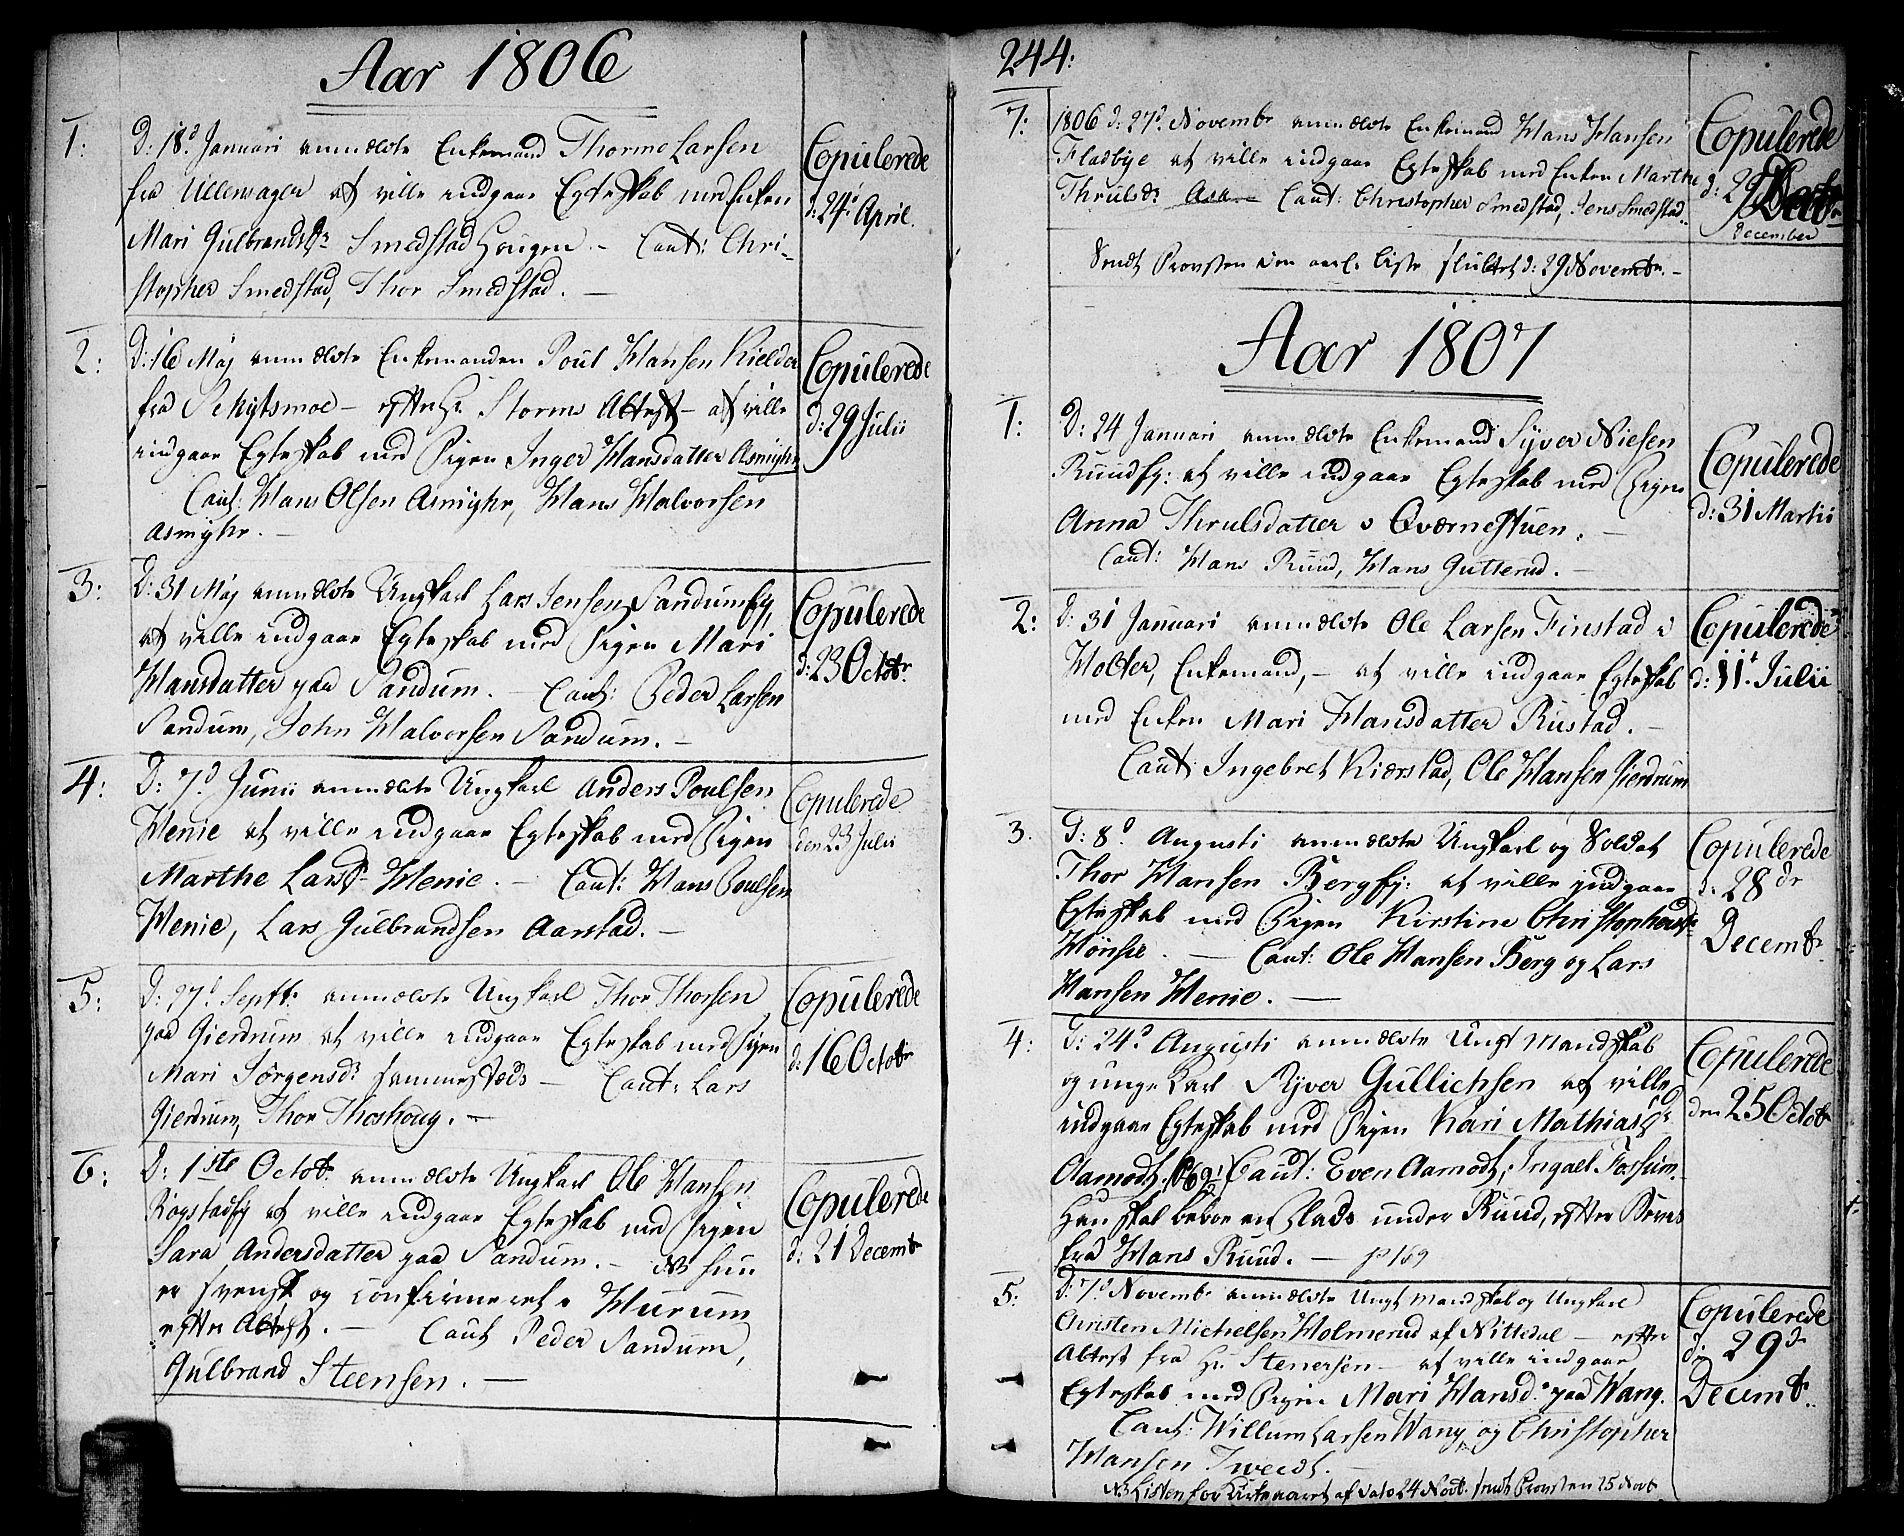 Aar 1806
1:
D: 18d Januari anmeldte Enkemand Thorme Larsen
fra Ullewager at ville indgaae Egteskab med Enken
Mari Gulbrandsdr Smedstad Hougen. - Caut: Chri-
stopher Smedstad, Thor Smedstad. -
Copulerede
d: 24de April.
2:
D: 16 Maj anmeldte Enkemanden Poul Hansen Kielder
fra Schytsmoe - efter Hr Storms Attest - at ville
indgaae Egteskab med Pigen Inger Hansdatter Asmyhr
Caut: Hans Olsen Asmyhr, Hans Halvorsen
Asmyhr. -
Copulerede
d: 29 Julii
3:
D: 31 Maj anmeldte Ungkarl Lars Jensen Sandumey,
at ville indgaae Egteskab med Pigen Mari
Hansdatter paa Sandum. - Caut: Peder Larsen
Sandum, John Halvorsen Sandum. -
Copulerede
d: 23 Octobr
4:
D: 7d Junii anmeldte Ungkarl Anders Poulsen
Henie at ville indgaae Egteskab med Pigen
Marthe Larsdr Henie. - Caut: Hans Poulsen
Henie, Lars Gulbrandsen Aarstad. -
Copulerede
den 23 Julii
5:
D: 27d Septb: anmeldte Ungkarl Thor Thorsen
paa Gierdrum at ville indgaae Egteskab med Pigen
Mari Jørgensdr sammesteds - Caut: Lars
Gierdrum, Thor Thoshoug. -
Copulerede
d: 16 Octobr
6:
D: 1ste Octob: anmeldte Ungkarl Ole Hansen
Rogstadey at ville indgaae Egteskab med Pigen
Sara Andersdatter paa Sandum. - NB hun
er svensk og confirmeret i Hurum
efter Attest. - Caut Peder Sandum,
Gulbrand Steensen. -
Copulerede
d: 21 Decembr
244:
7:
1806 d: 27d Novembr anmeldte Enkemand Hans Hansen
Fladbye at ville indgaae Egteskab med Enken Marthe
Thrulsdr Caut: Christopher Smedstad, Jens Smedstad.
Copulerede
d: 29
December
Sendt Provsten den aarl. Liste sluttet d: 29 Novembr. -
Aar 1807
1:
D: 24 Januari anmeldte Enkemand Syver Niesen
Ruudey: at ville indgaae Egteskab med Pigen
Anna Thrulsdatter i Qværnestuen. -
Caut: Hans Ruud, Hans Gutterud. -
Copulerede
d: 31 Martii
2:
D: 31 Januari anmeldte Ole Larsen Finstad i
Holter, Enkemand, - at ville indgaae Egteskab
med Enken Mari Hansdatter Rustad. -
Caut: Ingebret Kiærstad, Ole Hansen Gierdrum
Copulerede
d: 11t Julii
3.
D: 8d Augusti anmeldte Ungkarl og Soldat
Thor Hansen Bergey: at ville indgaae
Egteskab med Pigen Kirstine Christophersdr
Hønsie. - Caut: Ole Hansen Berg og Lars
Hansen Henie. -
Copulerede
d: 28de
Decembr
4:
D: 24d Augusti anmeldte Ungt Mandskab
og unge Karl Syver Gullichsen at ville
indgaae Egteskab med Pigen Kari Mathiasdr
Aamodt. Caut: Even Aamodt, Ingael Fossum. -
Han skal beboe en Plads under Ruud, efter Beviis
fra Hans Ruud. - p 169
Copulerede
den 25 Octobr
5:
D: 7d Novembr anmeldte Ungt Mandskab og Ungkarl
Christen Michelsen Holmerud af Nittedal - efter
Attest fra Hr Stenersen - at ville indgaae
Egteskab med Pigen Mari Hansd: paa Wang.
Caut: Willum Larsen Wang og Christopher
Hansen Tveedt. -
NB Listen for Kirkeaaret af Dato 24 Novb. sendt Provsten 25 Novb
Copulerede
d: 29de
Decembr